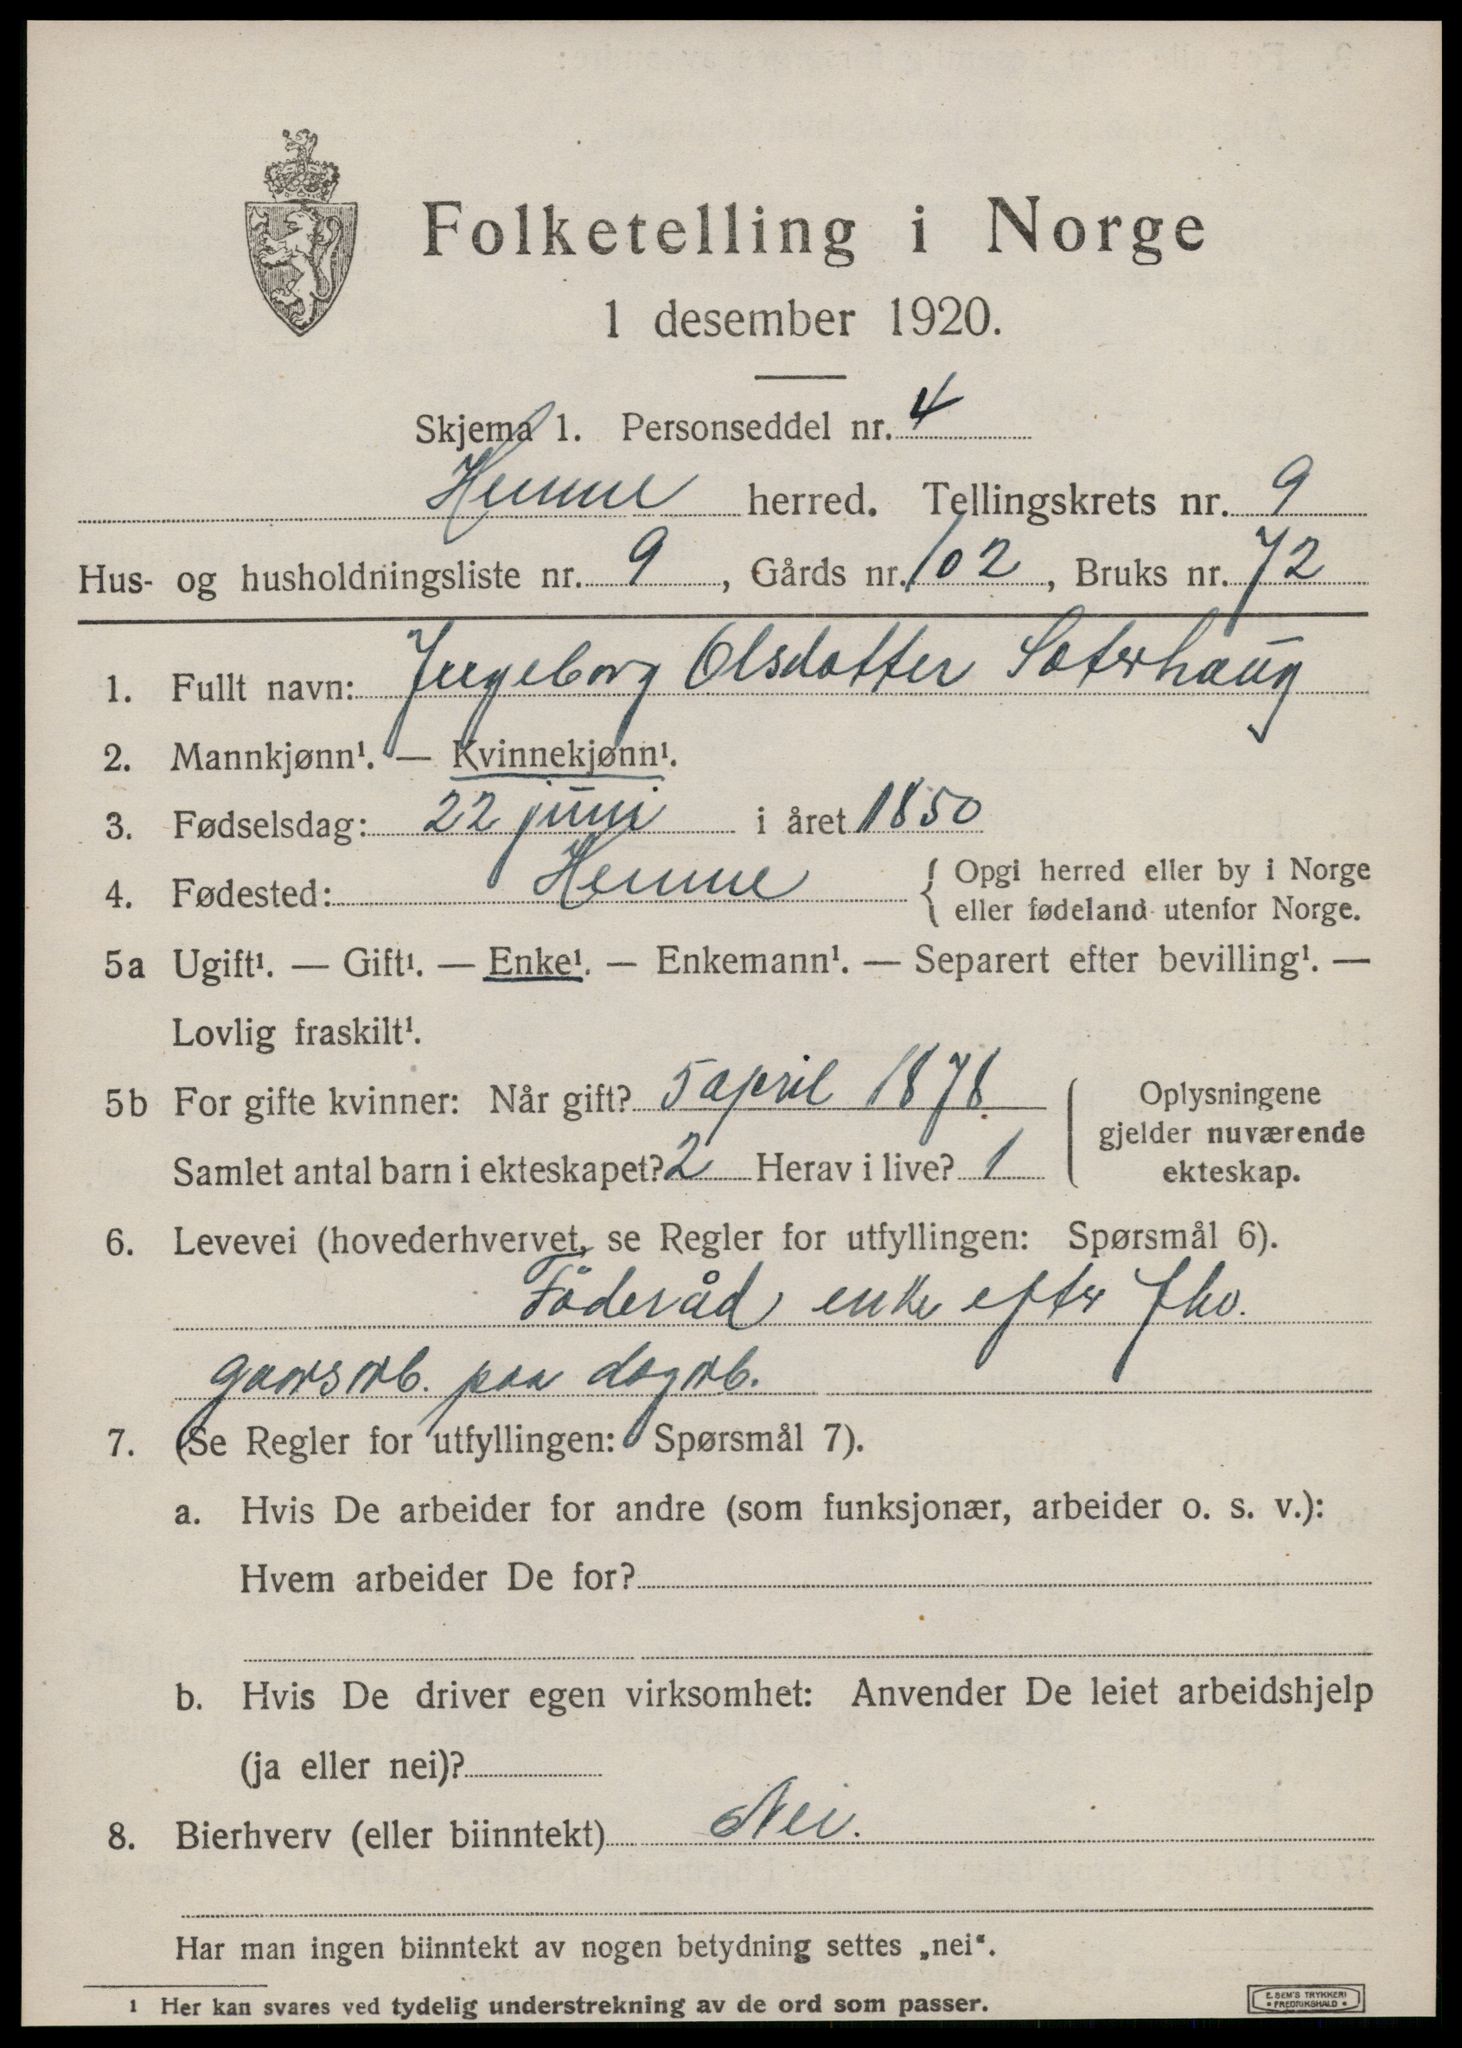 Folketelling i Norge
1 desember 1920.
Skjema 1. Personseddel nr. 4
Hemne herred. Tellingskrets nr. 9
Hus- og husholdningsliste nr. 9, Gårds nr. 102, Bruks nr. 72
1. Fullt navn: Ingeborg Olsdatter Sæterhaug
2. Mannkjønn¹. — Kvinnekjønn¹.
3. Fødselsdag: 22 juni i året 1850
4. Fødested: Hemne { Opgi herred eller by i Norge
eller fødeland utenfor Norge.
5a Ugift¹. — Gift¹. — Enke¹. — Enkemann¹. — Separert efter bevilling¹. —
Lovlig fraskilt¹.
5b For gifte kvinner: Når gift? 5 april 1878
Samlet antal barn i ekteskapet? 2 Herav i live? 1
Oplysningene
gjelder nuværende
ekteskap.
6. Levevei (hovederhvervet, se Regler for utfyllingen: Spørsmål 6).
Föderåd, enke efter
paa
7. (Se Regler for utfyllingen: Spørsmål 7).
a. Hvis De arbeider for andre (som funksjonær, arbeider o. s. v.):
Hvem arbeider De for?
b. Hvis De driver egen virksomhet: Anvender De leiet arbeidshjelp
(ja eller nei)?
8. Bierhverv (eller biinntekt) Nei.
Har man ingen biinntekt av nogen betydning settes „nei“.
1 Her kan svares ved tydelig understrekning av de ord som passer.
E. SEM'S TRYKKERI
• FREDRIKSHALD •